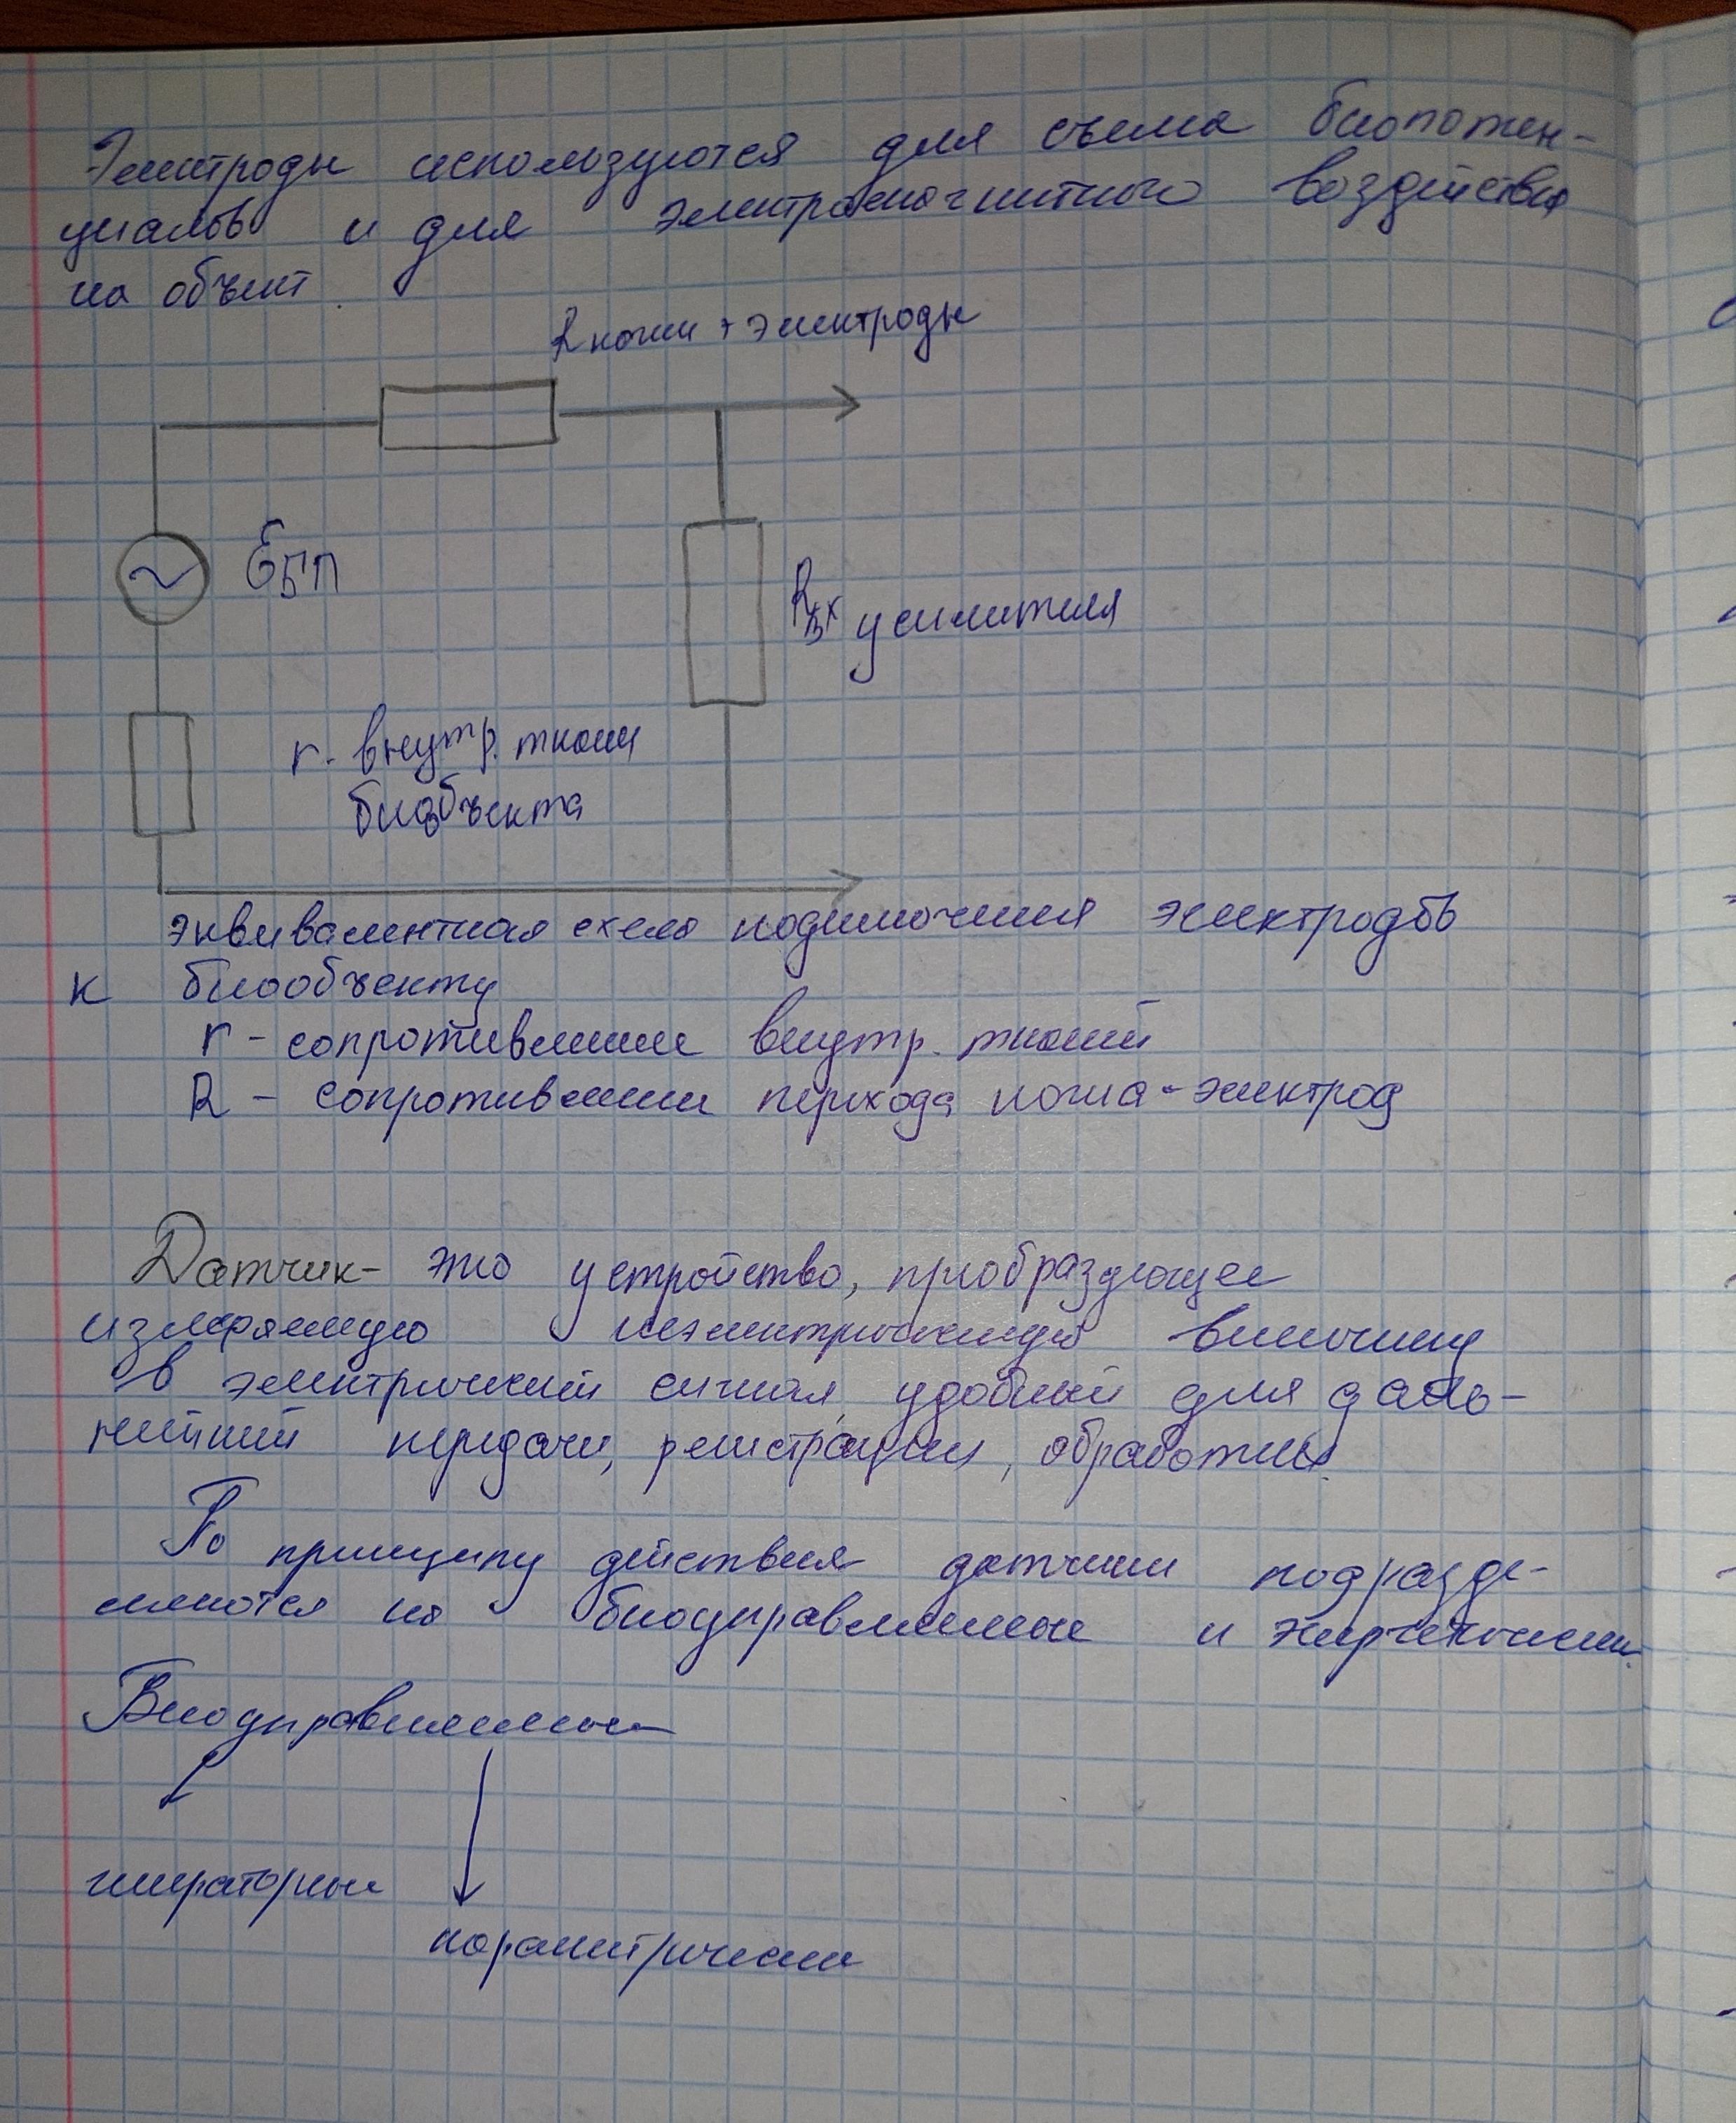 Электроды используются для съема биопотен-
циалов и для электромагнитного воздействия
на объект.
R кожи + электроды
Eбп
Rвх усилителя
r - внутр. ткани
биообъекта
эквивалентная схема подключения электродов
к биообъекту
r - сопротивление внутр. тканей
R - сопротивление перехода кожа-электрод
Датчик - это устройство, преобразующее
измеряемую неэлектрическую величину
в электрический сигнал, удобный для даль-
нейшей передачи, регистрации, обработки.
По принципу действия датчики подразде-
ляются на биоуправляемые и энергетические.
Биоуправляемые
генераторные
параметрические